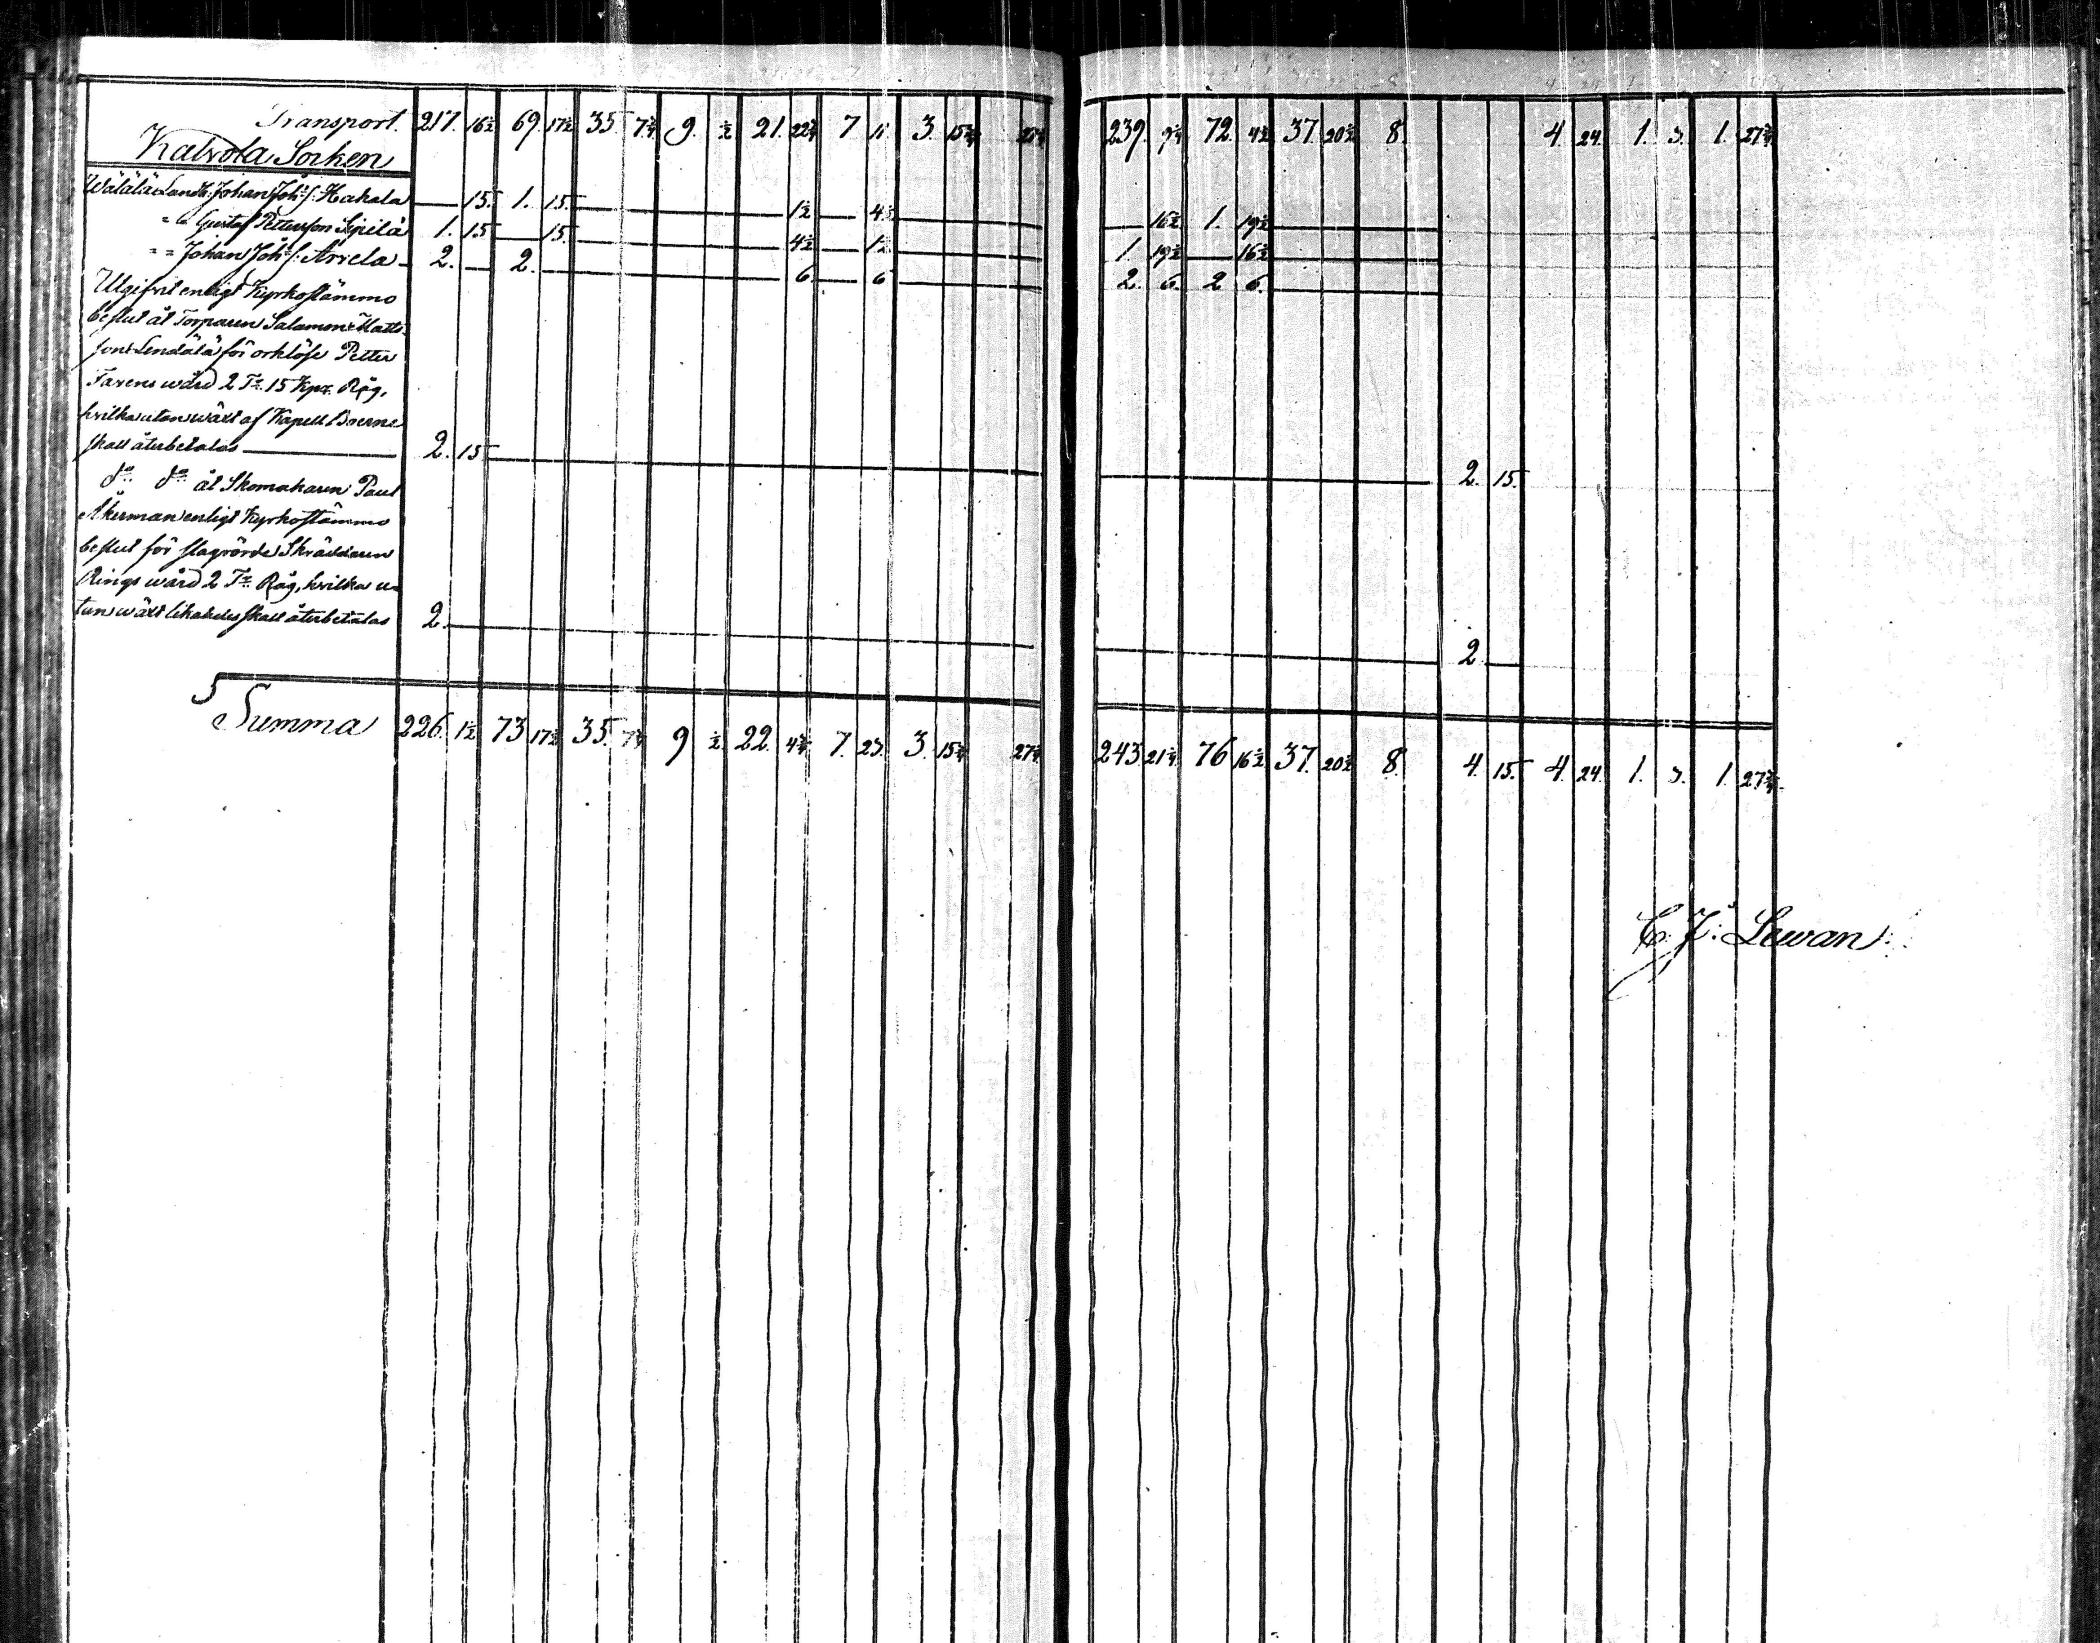 Transport. 217. 16½ 69. 17½ 35. 7¾ 9. ½ 21. 22¾ 7 11 3. 15¾ 27¾ 239. 9¼ 72. 4½ 37. 20½ 8. 4. 24. 1. 3. 1. 27¾
Kalvola Socken
Wälälä Landb: Johan Joh:s: Hakala 15. 1. 15. 1½ 4½ 16½ 1. 19½
" " Gustaf Pettersson Sipilä 1. 15 15. 4½ 1½ 1 19½ 16½
" " Johan Joh:s: Arvela 2. 2. 6. 6 2. 6. 2 6.
Utgifvit enligt Kyrkostämmo
beslut åt Torparen Salomon Matts
son Lendälä för orklöse Petter
Farens wård 2 T:r 15 Kpr. Råg,
hvilka utan wäxt af Kapell Boerne
skall återbetalas 2. 15. 2. 15.
d:o d:o åt Skomakaren Paul
Åkerman enligt Kyrkostämmo
beslut för slagrörde Skräddaren
Rings wård 2 T:r Råg, hvilka u-
tan wäxt likaledes skall återbetalas 2. 2
Summa 226. 1½ 73 17½ 35. 7¾ 9 ½ 22. 4¾ 7. 23. 3. 15¾ 27¾ 243 21¼ 76 16½ 37. 20½ 8. 4. 15. 4. 24. 1. 3. 1. 27¾.
C. J. Lewan